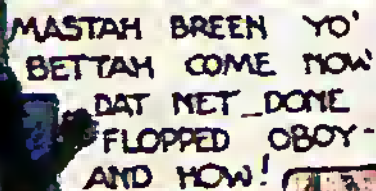 MASTAH BREEN YO'
BETTAH COME NOW
DAT NET_DONE
FLOPPED OBOY-
AND HOW!